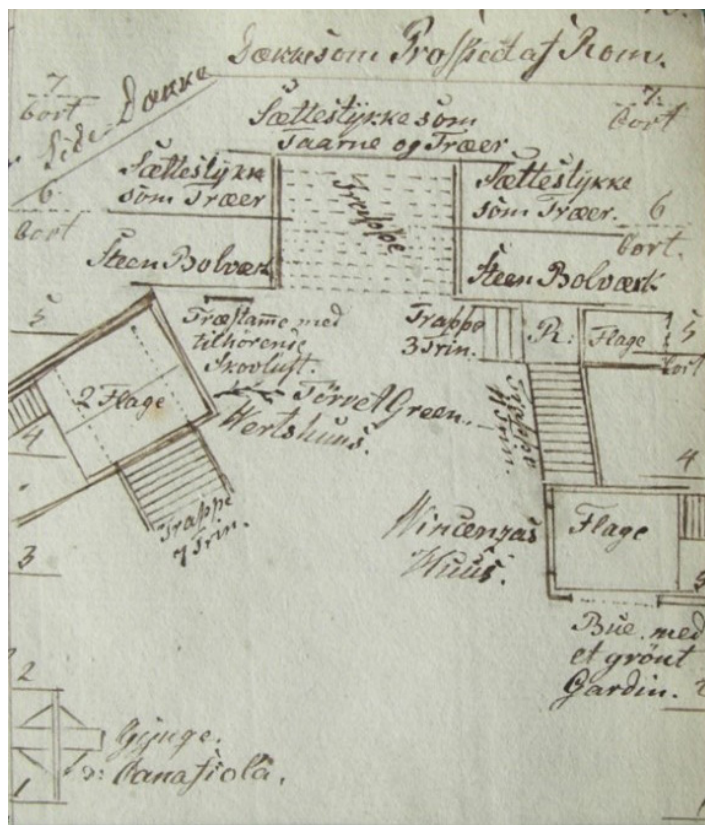 Dækkesom Prospect af Rom.
7
bort
Side Dække
7:
bort
Sættestykke som
Taarne og Træer
Sættestykke
som Træer
6
bort
Trappe
Sættestykke
som Træer.
6
bort.
Steen Bolværk
Steen Bolværk
5
Træstamme med
tilhørende
Skovluft.
Trappe
3 Trin.
R:
Flage
5
bort
2 Flage
4
Törvet Green
Wertshuus.
Trappe
Trin.
4
Trappe
7 Trin.
Vincenzas
Huus.
Flage
3
3
Bue med
et grönt
Gardin.
2
2
Gynge.
1
1